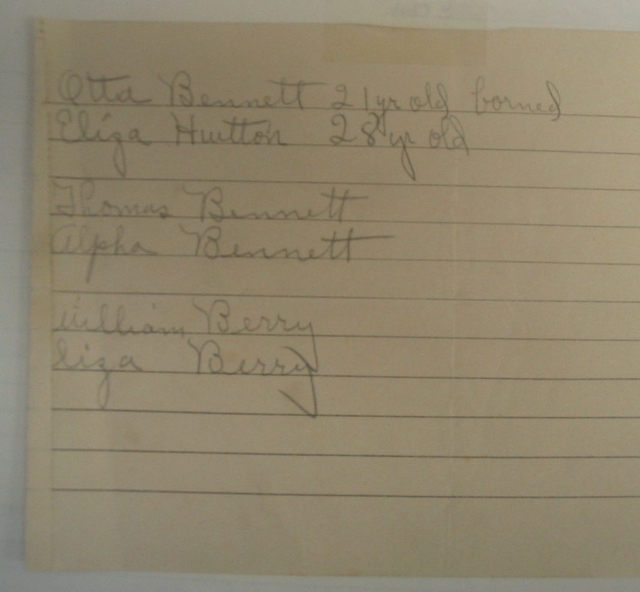 Otta Bennett 21 yr old borned
Eliza Hutton 28 yr old
Thomas Bennett
Alpha Bennett
William Berry
liza Berry